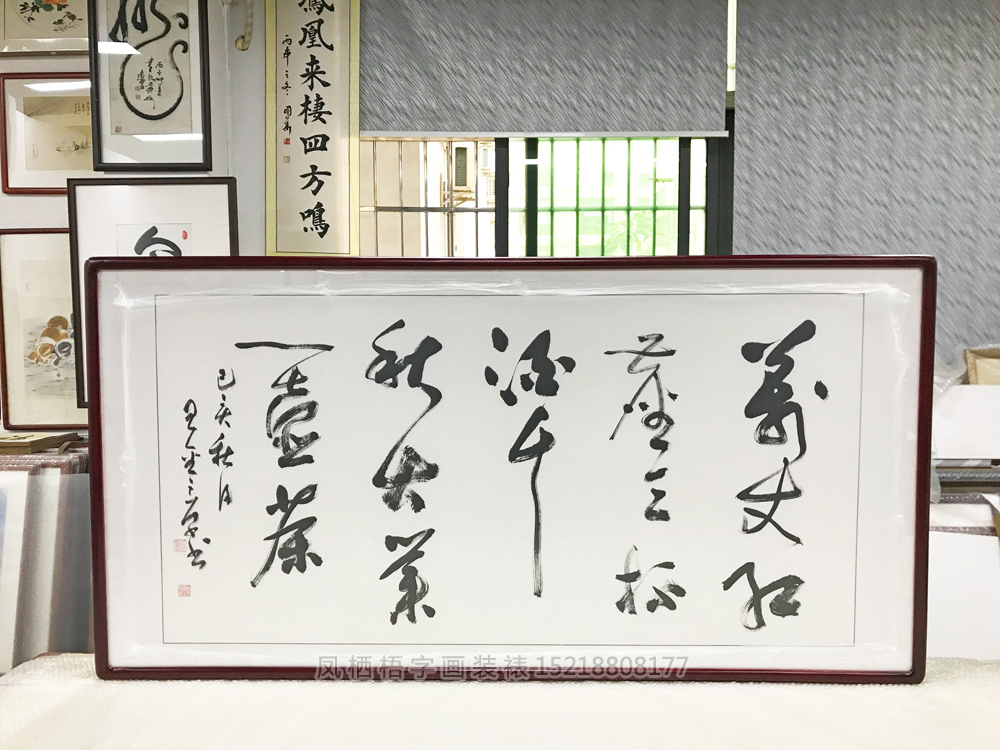 鳳凰来棲四方鳴
萬丈红
塵三杯
酒千
秋大業
一壺茶
己亥秋月
凤栖梧字画装裱15218808177